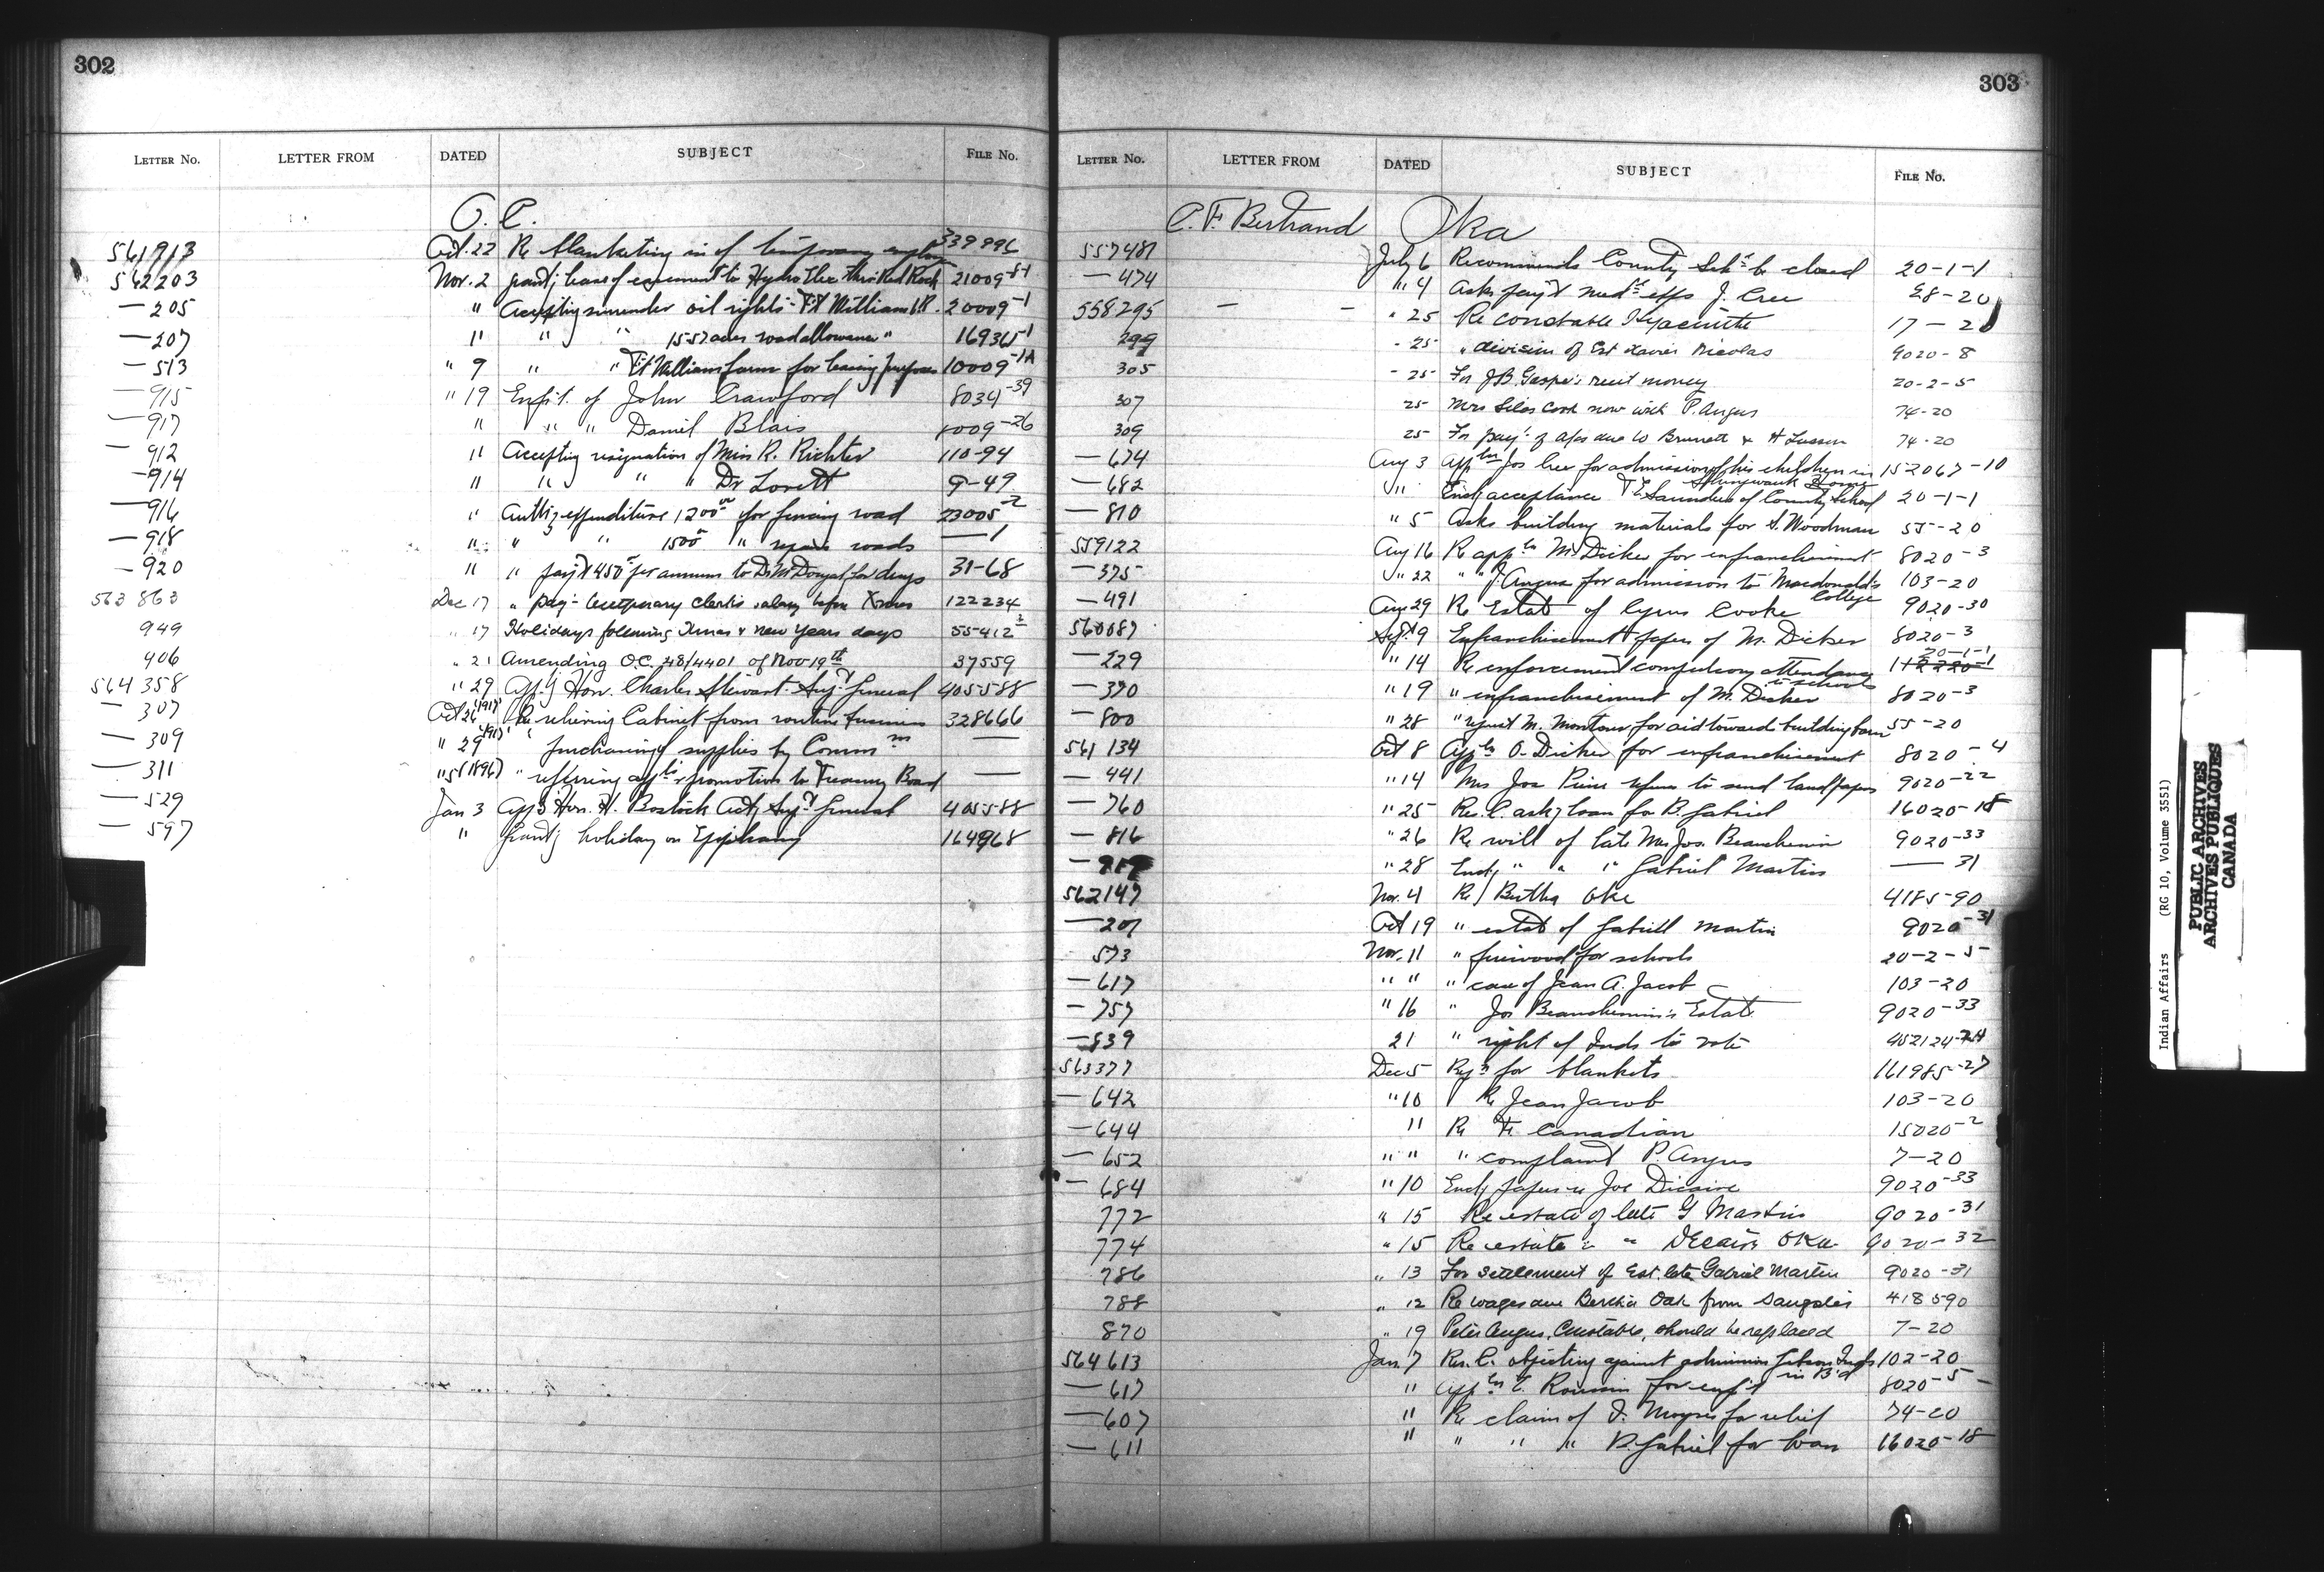 302
LETTER No. LETTER FROM DATED SUBJECT FILE No.
O. C.
561913 Oct. 22 Re blanketing in of temporary 339896
562203 Nov. 2 grant'g lease of easement to Hydro Elec thro Red Rock 21009-8-1
— 205 " Accepting surrender oil rights - Ft William I.R. 20009-1
— 207 " " " 15.57 acres road allowance " 169361-1
— 513 " 9 " " Ft William farm for leasing purposes 10009-1A
— 915 " 19 Enft. of John Crawford 8034-39
— 917 " " " Daniel Blais 8009-26
— 912 " Accepting resignation of Miss R. Richter 110-94
— 914 " " " " Dr Lovett 9-49
— 916 " Auth'g expenditure 1200 00 for fencing road 23005-2
— 918 " " " 1500 " repair roads — 1
— 920 " " pay't 450 per annum to Dr McDougal for drugs 31-68
563863 Dec 17 " pay't temporary clerks salary before Xmas 122234
949 " 17 Holidays following Xmas & New Years days 55412-2
406 " 21 Amending O.C. 48/4401 of Nov 19th 37559
564358 " 29 App'g Hon. Charles Stewart Sup't General 405588
— 307 Oct 26 (1917) Re relieving Cabinet from routine business 328666
— 309 " 29 1917 " purchasing of supplies by Commn —
— 311 " 5 (1896) " referring appln promotion to Treasury Board —
— 529 Jan 3 App'g Hon. H. Bostock Act'g Sup't General 405588
— 597 " Grant'g holiday on Epiphany 164968
303
LETTER No. LETTER FROM DATED SUBJECT FILE No.
C. F. Bertrand Oka
557481 July 6 Recommends County Schl be closed 20-1-1
— 474 " 4 Asks pay't med'l effs J. Cree 28-20
558295 — — " 25 Re constable Hyacinthe 17-20
299 " 25 " division of Est Xavier Nicolas 9020-8
305 " 25 For J B Gaspe's rent money 20-2-5
307 25 Mrs Silas Cook now with P. Angus 74-20
309 25 For pay't of a/cs due W Brunett & H Lusson 74-20
— 674 Aug 3 Appln Jos Cree for admission of his children in Shingwauk Home 152067-10
— 682 " Encl'g acceptance T E Saunders of County School 20-1-1
— 810 " 5 Asks building materials for S. Woodman 55-20
559122 Aug 16 Re appln M. Dicker for enfranchisement 8020-3
— 375 " 22 " " J. Angus for admission to Macdonald's College 103-20
— 491 Aug 29 Re Estate of Cyrus Cooke 9020-30
560087 Sept 9 Enfranchisement papers of M. Dicker 8020-3
— 229 " 14 Re enforcement compulsory attendance to schools 20-1-1
— 370 " 19 " enfranchisement of M. Dicker 8020-3
— 800 " 28 " request M. Montour for aid toward building barn 55-20
561134 Oct 8 Appln O. Dicker for enfranchisement 8020-4
— 441 " 14 Mrs Jos Pierre refuses to send land papers 9020-22
— 760 " 25 Res. C. ask'g loan for B. Gabriel 16020-18
— 816 " 26 Re will of late Mrs Jos. Beauchemin 9020-33
" 28 Encl'g " " " Gabriel Martin — 31
562147 Nov. 4 Re Bertha Oke 4185-90
— 207 Oct 19 " estate of Gabriell Martin 9020-31
573 Nov. 11 " firewood for schools 20-2-5
— 617 " " " case of Jean A. Jacob 103-20
— 757 " 16 " Jos Beauchemin's Estate 9020-33
— 839 21 " right of Inds to vote 452124-74
563377 Dec 5 Reqn for blankets 161985-27
— 642 " 10 Re Jean Jacob 103-20
— 644 11 Re Fr. Canadian 15020-2
— 652 " " " complaint P. Angus 7-20
— 684 " 10 Encl'g papers re Joe Dicaire 9020-33
772 " 15 Re estate of late G Martin 9020-31
774 " 15 Re estate " " Decaire Oka 9020-32
786 " 13 For settlement of Est. late Gabriel Martin 9020-31
788 " 12 Re wages due Bertha Oak from 418590
870 " 19 Peter Angus, Constable, should be replaced 7-20
564613 Jan. 7 Res. C. objecting against admission Gibson Inds in B'd 102-20
— 617 " Appln E. Roussin for enf't 8020-5
— 607 " Re claim of for relief 74-20
— 611 " " " " B. Gabriel for loan 16020-18
Indian Affairs (RG 10, Volume 3551)
PUBLIC ARCHIVES
ARCHIVES PUBLIQUES
CANADA